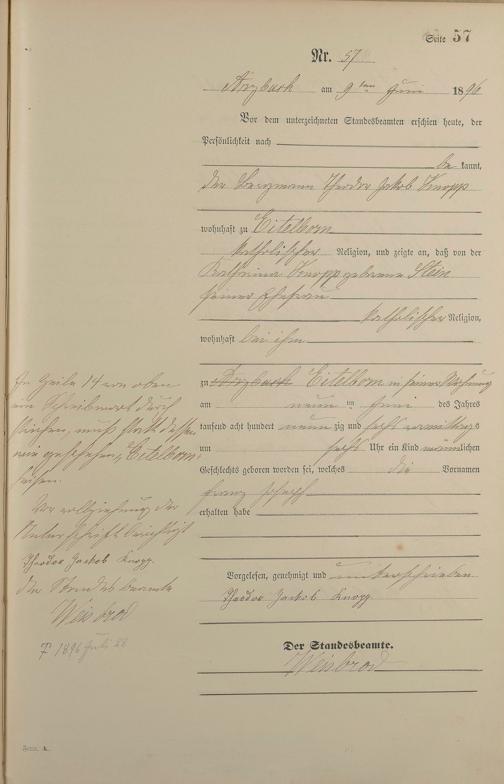 Seite 57
Nr. 57
Arzbach am 9ten Juni 1896
Vor dem unterzeichneten Standesbeamten erschien heute, der
Persönlichkeit nach
be kannt,
der Bergmann Theodor Jakob Knopp
wohnhaft zu Eitelborn
katholischer Religion, und zeigte an, daß von der
Katharina Knopp geborene Stein
seiner Ehefrau
katholischer Religion,
wohnhaft bei ihm
zu Arzbach Eitelborn in seiner Wohnung
am neunten Juni des Jahres
tausend acht hundert neunzig und sechs vormittags
um sechs Uhr ein Kind männlichen
Geschlechts geboren worden sei, welches die Vornamen
Franz Joseph
erhalten habe
In Zeile 14 von oben
ein Schreibwort durch
strichen, muß statt dessen
wie geschehen, "Eitelborn"
heißen.
Vor vollziehung der
Unterschrift berichtigt
Theodor Jackob Knopp
der Standesbeamte
Weisbrod
† 1896 Juli 28
Vorgelesen, genehmigt und unterschrieben
Theodor Jackob Knopp
Der Standesbeamte.
Weisbrod
Form. A.